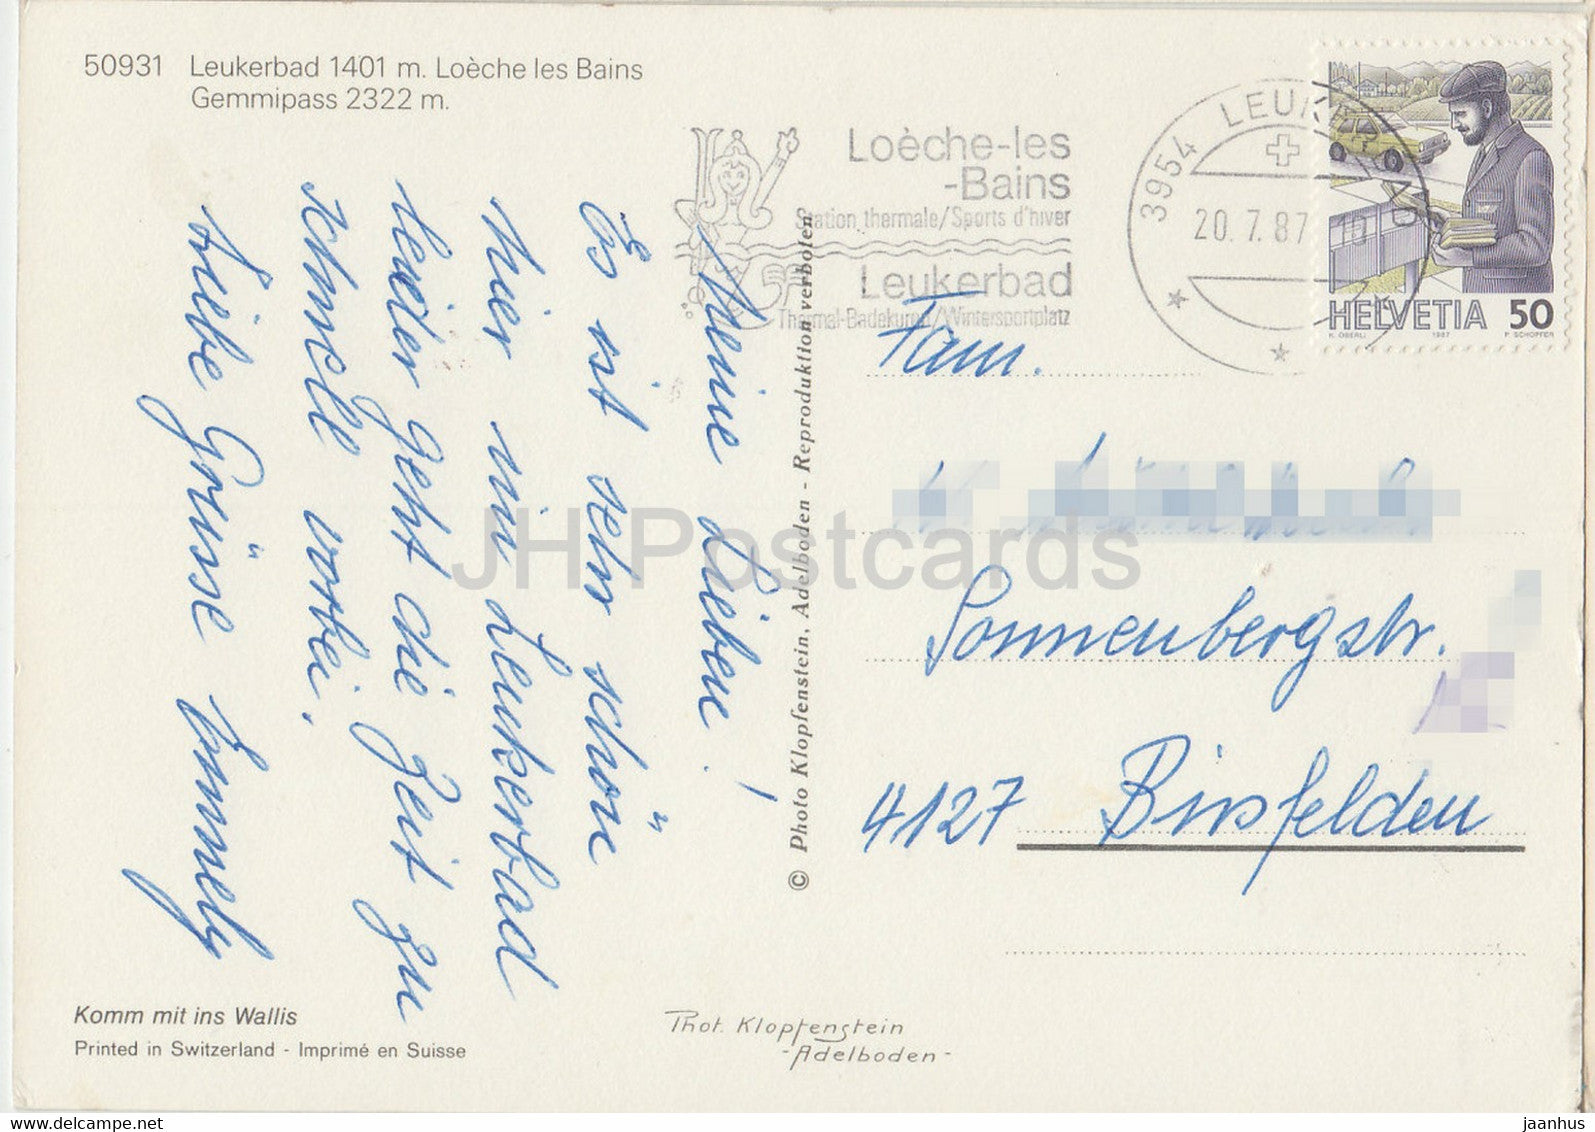 50931 Leukerbad 1401 m. Loèche les Bains
Gemmipass 2322 m.
Loèche-les
-Bains
Station thermale/Sports d'hiver
Leukerbad
Thermal-Badekuren/Wintersportplatz
3954 LEUKERBAD
20.7.87
HELVETIA 50
K. OBERLI 1987 P. SCHOPFER
Meine Lieben!
Es ist sehr schön
hier in Leukerbad
leider geht die Zeit zu
schnell vorbei.
Liebe Grüsse Emmely
© Photo Klopfenstein, Adelboden - Reproduktion verboten
Fam.
Sonnenbergstr.
4127 Birsfelden
JH Postcards
Komm mit ins Wallis
Printed in Switzerland - Imprimé en Suisse
Phot. Klopfenstein
- Adelboden -
delcampe.net
jaanhus